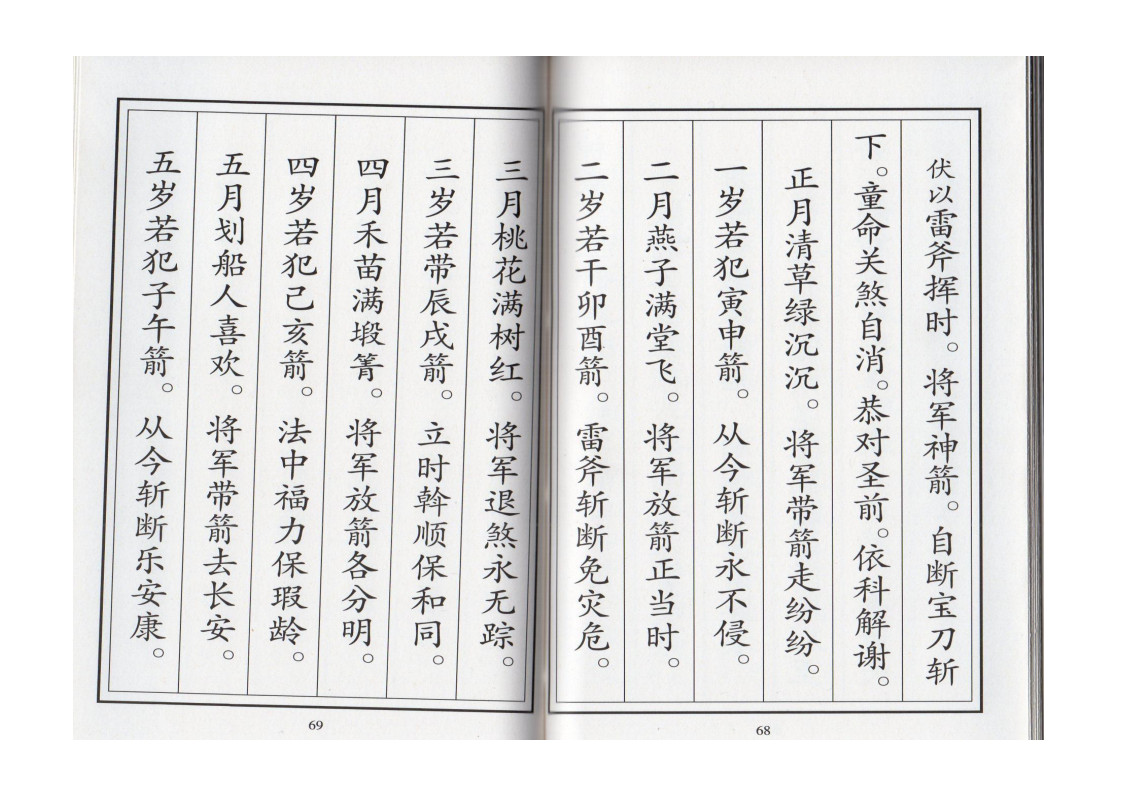 伏以雷斧挥时。将军神箭。自断宝刀斩
下。童命关煞自消。恭对圣前。依科解谢。
正月清草绿沉沉。将军带箭走纷纷。
一岁若犯寅申箭。从今斩断永不侵。
二月燕子满堂飞。将军放箭正当时。
二岁若干卯酉箭。雷斧斩断免灾危。
68
三月桃花满树红。将军退煞永无踪。
三岁若带辰戌箭。立时斡顺保和同。
四月禾苗满塅箐。将军放箭各分明。
四岁若犯己亥箭。法中福力保瑕龄。
五月划船人喜欢。将军带箭去长安。
五岁若犯子午箭。从今斩断乐安康。
69